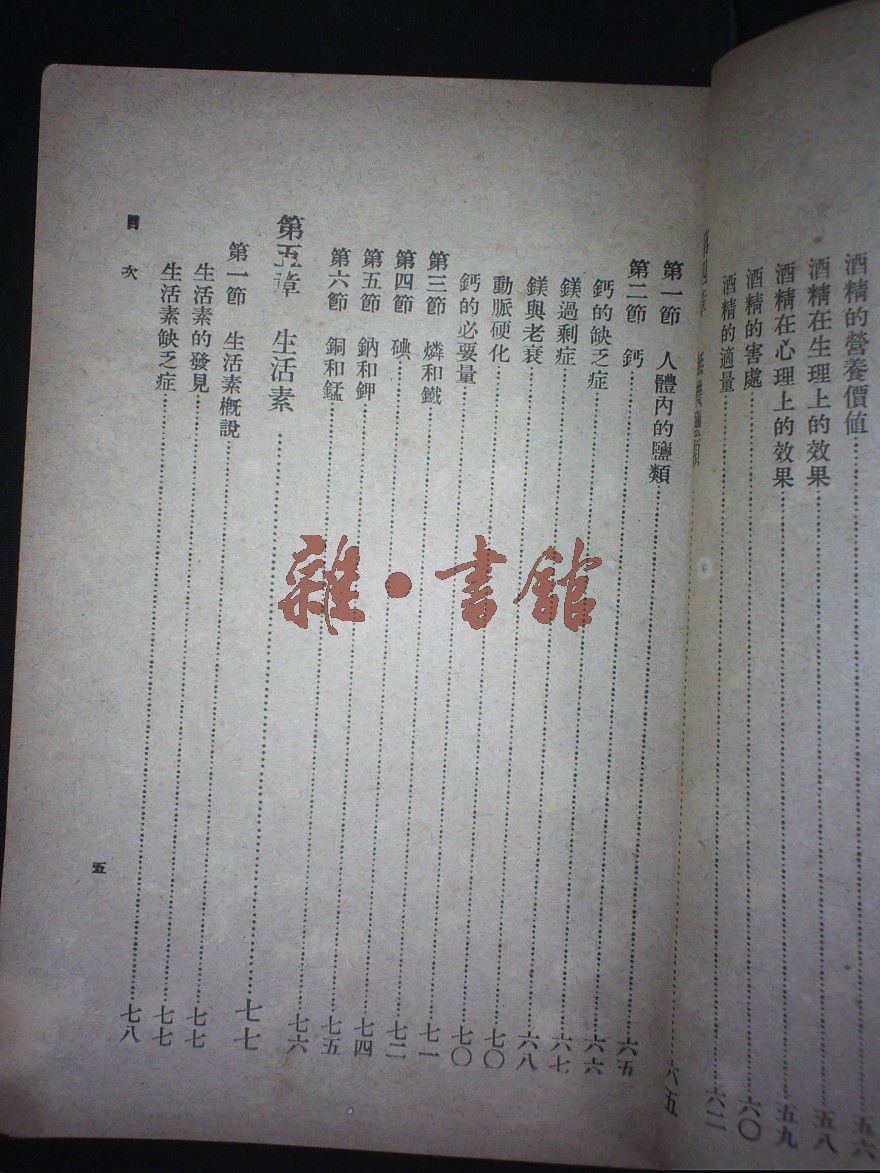 酒精的營養價值……五六
酒精在生理上的效果……五八
酒精在心理上的效果……五九
酒精的害處……六〇
酒精的適量……六二
第四章 無機鹽類……六五
第一節 人體內的鹽類……六五
第二節 鈣……六六
鈣的缺乏症……六七
鎂過剩症……六八
鎂與老衰……七〇
動脈硬化……七〇
鈣的必要量……七一
第三節 燐和鐵……七二
第四節 碘……七四
第五節 鈉和鉀……七五
第六節 銅和錳……七六
第五章 生活素……七七
第一節 生活素概說……七七
生活素的發見……七七
生活素缺乏症……七八
目次
五
雜·書館